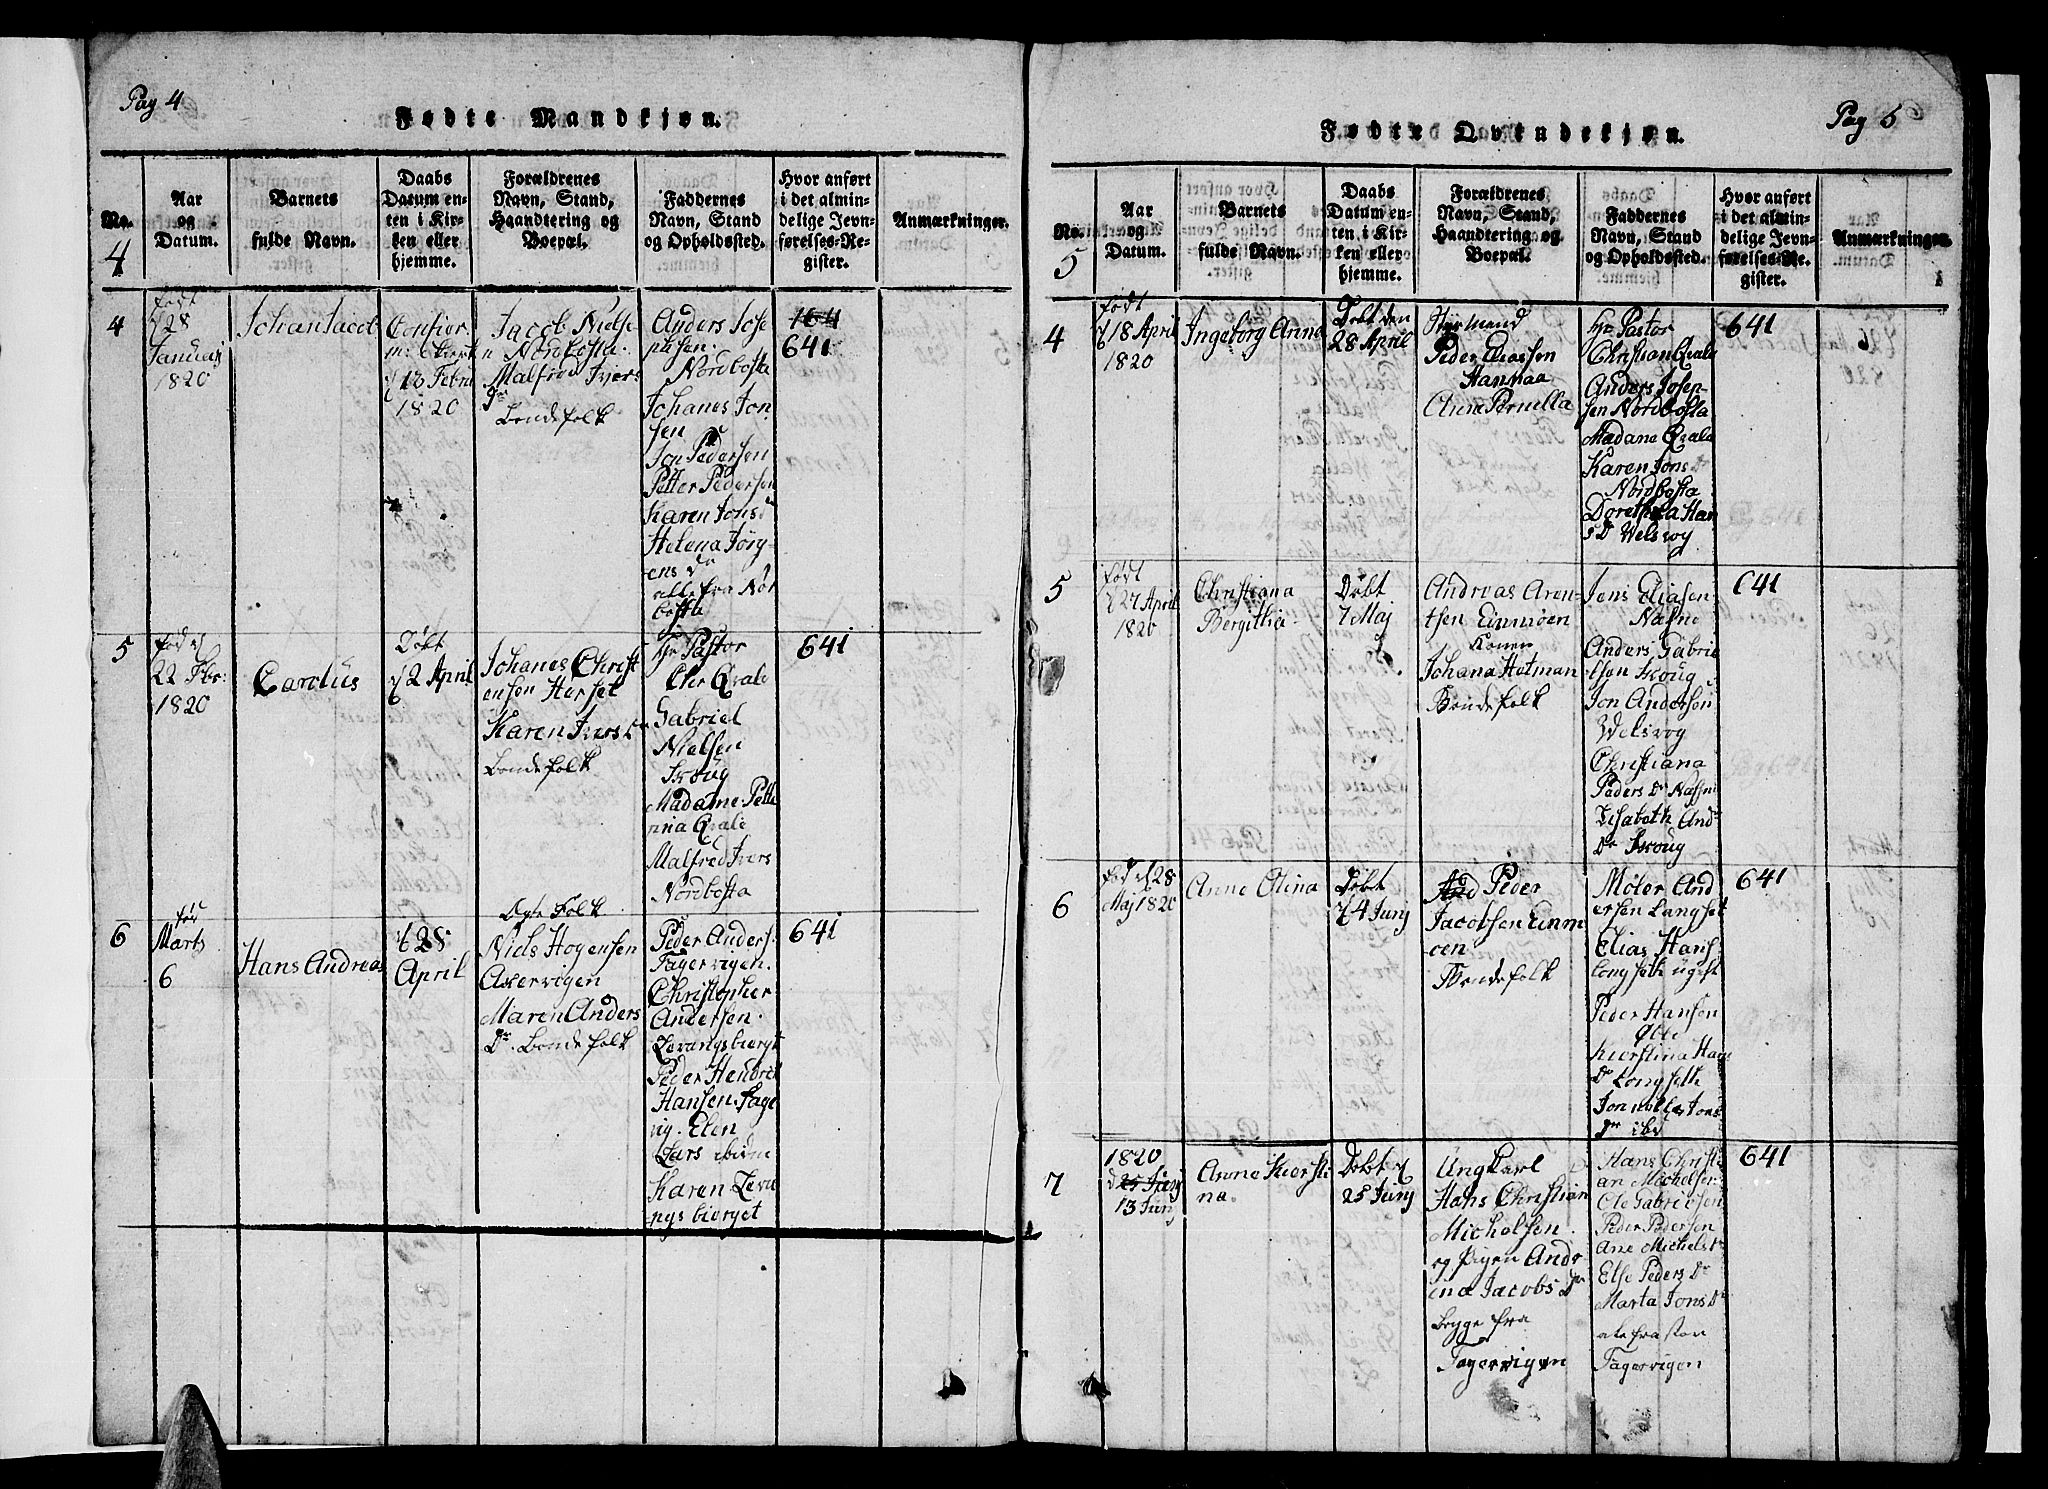 Pag 4
Fødte Mandkjøn.
No.
4
Aar
og
Datum.
Barnets
fulde Navn.
Daabs
Datum en-
ten i Kir-
ken eller
hjemme.
Forældrenes
Navn, Stand,
Haandtering og
Boepæl.
Faddernes
Navn, Stand
og Opholdssted.
Hvor anført
i det almin-
delige Jevn-
førelses-Re-
gister.
Anmærkninger.
4
født
28
Januarj
1820
Johan Jacob
Confir
13 Febru
1820
Jacob Niels
Nordbosta
Malfrid Ivers
Dr
Bondefolk
Anders Jose
phsen
Nordbosta
Johanes Jon
sen
Jon Pedersen
Petter Pedersen
Karen Jons d
Helena Jörg
ens Dr
alle fra Nor
bosta
164
641
5
fød
22 Fbr:
1820
Carolus
Döbt
2 April
Johanes Christ
ensen Herset
Karen Ivers D
Bondefolk
Hr Pastor
Chr Qvale
Gabriel
Nielsen
Skoug
Madame Pette
rina Qvale
Malfred Ivers
Nordbosta
641
6
fød
Marts
6
Hans Andreas
28
April
Ægte Folk
Niels Hogensen
Axervigen
Maren Anders
Dr. Bondefolk
Peder Anders:
Fagervigen.
Christopher
Andersen.
Levangsbierget
Peder Hendrik
Hansen. Fage
vig. Elen
Lars ibidm
Karen Leva
ngsbierget
641
Pag 5
Fødte Qvindekjøn.
No.
5
Aar
og
Datum.
Barnets
fulde Navn.
Daabs
Datum en-
ten i Kir-
ken eller
hjemme.
Forældrenes
Navn, Stand,
Haandtering og
Boepæl.
Faddernes
Navn, Stand
og Opholdssted.
Hvor anført
i det almin-
delige Jevn-
førelses-Re-
gister.
Anmærkninger.
4
født
18 April
1820
Ingeborg Anna
Döbt den
28 April
Styrmand
Peder Eliassen
Hannaa
Anne Pernella
Hr Pastor
Christian Qvale
Anders Josen-
sen Nordbosta
Madame Qvale
Karen Jons Dr
Nordbosta
Dorethea Han
s Dr Velsvog
641
5
født
27 April
1820
Christiana
Bergittha
Döbt
7 Maj
Andreas Aren-
tsen Einmoen
Konen
Johana Hetman
Bondefolk
Jens Eliasen
Næsne
Anders Gabrie
lsen Skoug
Jon Andersen
Velsvog
Christiana
Peders Dr Næsne
Lisabeth And
Dr Skoug
641
6
fød 28
Maj 1820
Anne Olina
Döbt
4 Junj
Peder
Jacobsen Einm
oen
Bondefolk
Möler And
ersen Langset
Elias Hans
Langseth
Peder Hansen
Kierstina Han
Dr Langseth
Jons
Dr ibd
641
7
1820
25 Junj
13 Junj
Anne Kiersti
na.
Döbt
25 Junj
Ungkarl
Hans Christian
Michelsen
og Pigen Andr
ina Jacobs Dr
begge fra
Fagervigen
Hans Christi
an Michelsen
Ole Gabrielsen
Peder Pedersen
Ane Michels Dr
Else Peders Dr
Marta Jons Dr
ale fra
Fagervigen
641